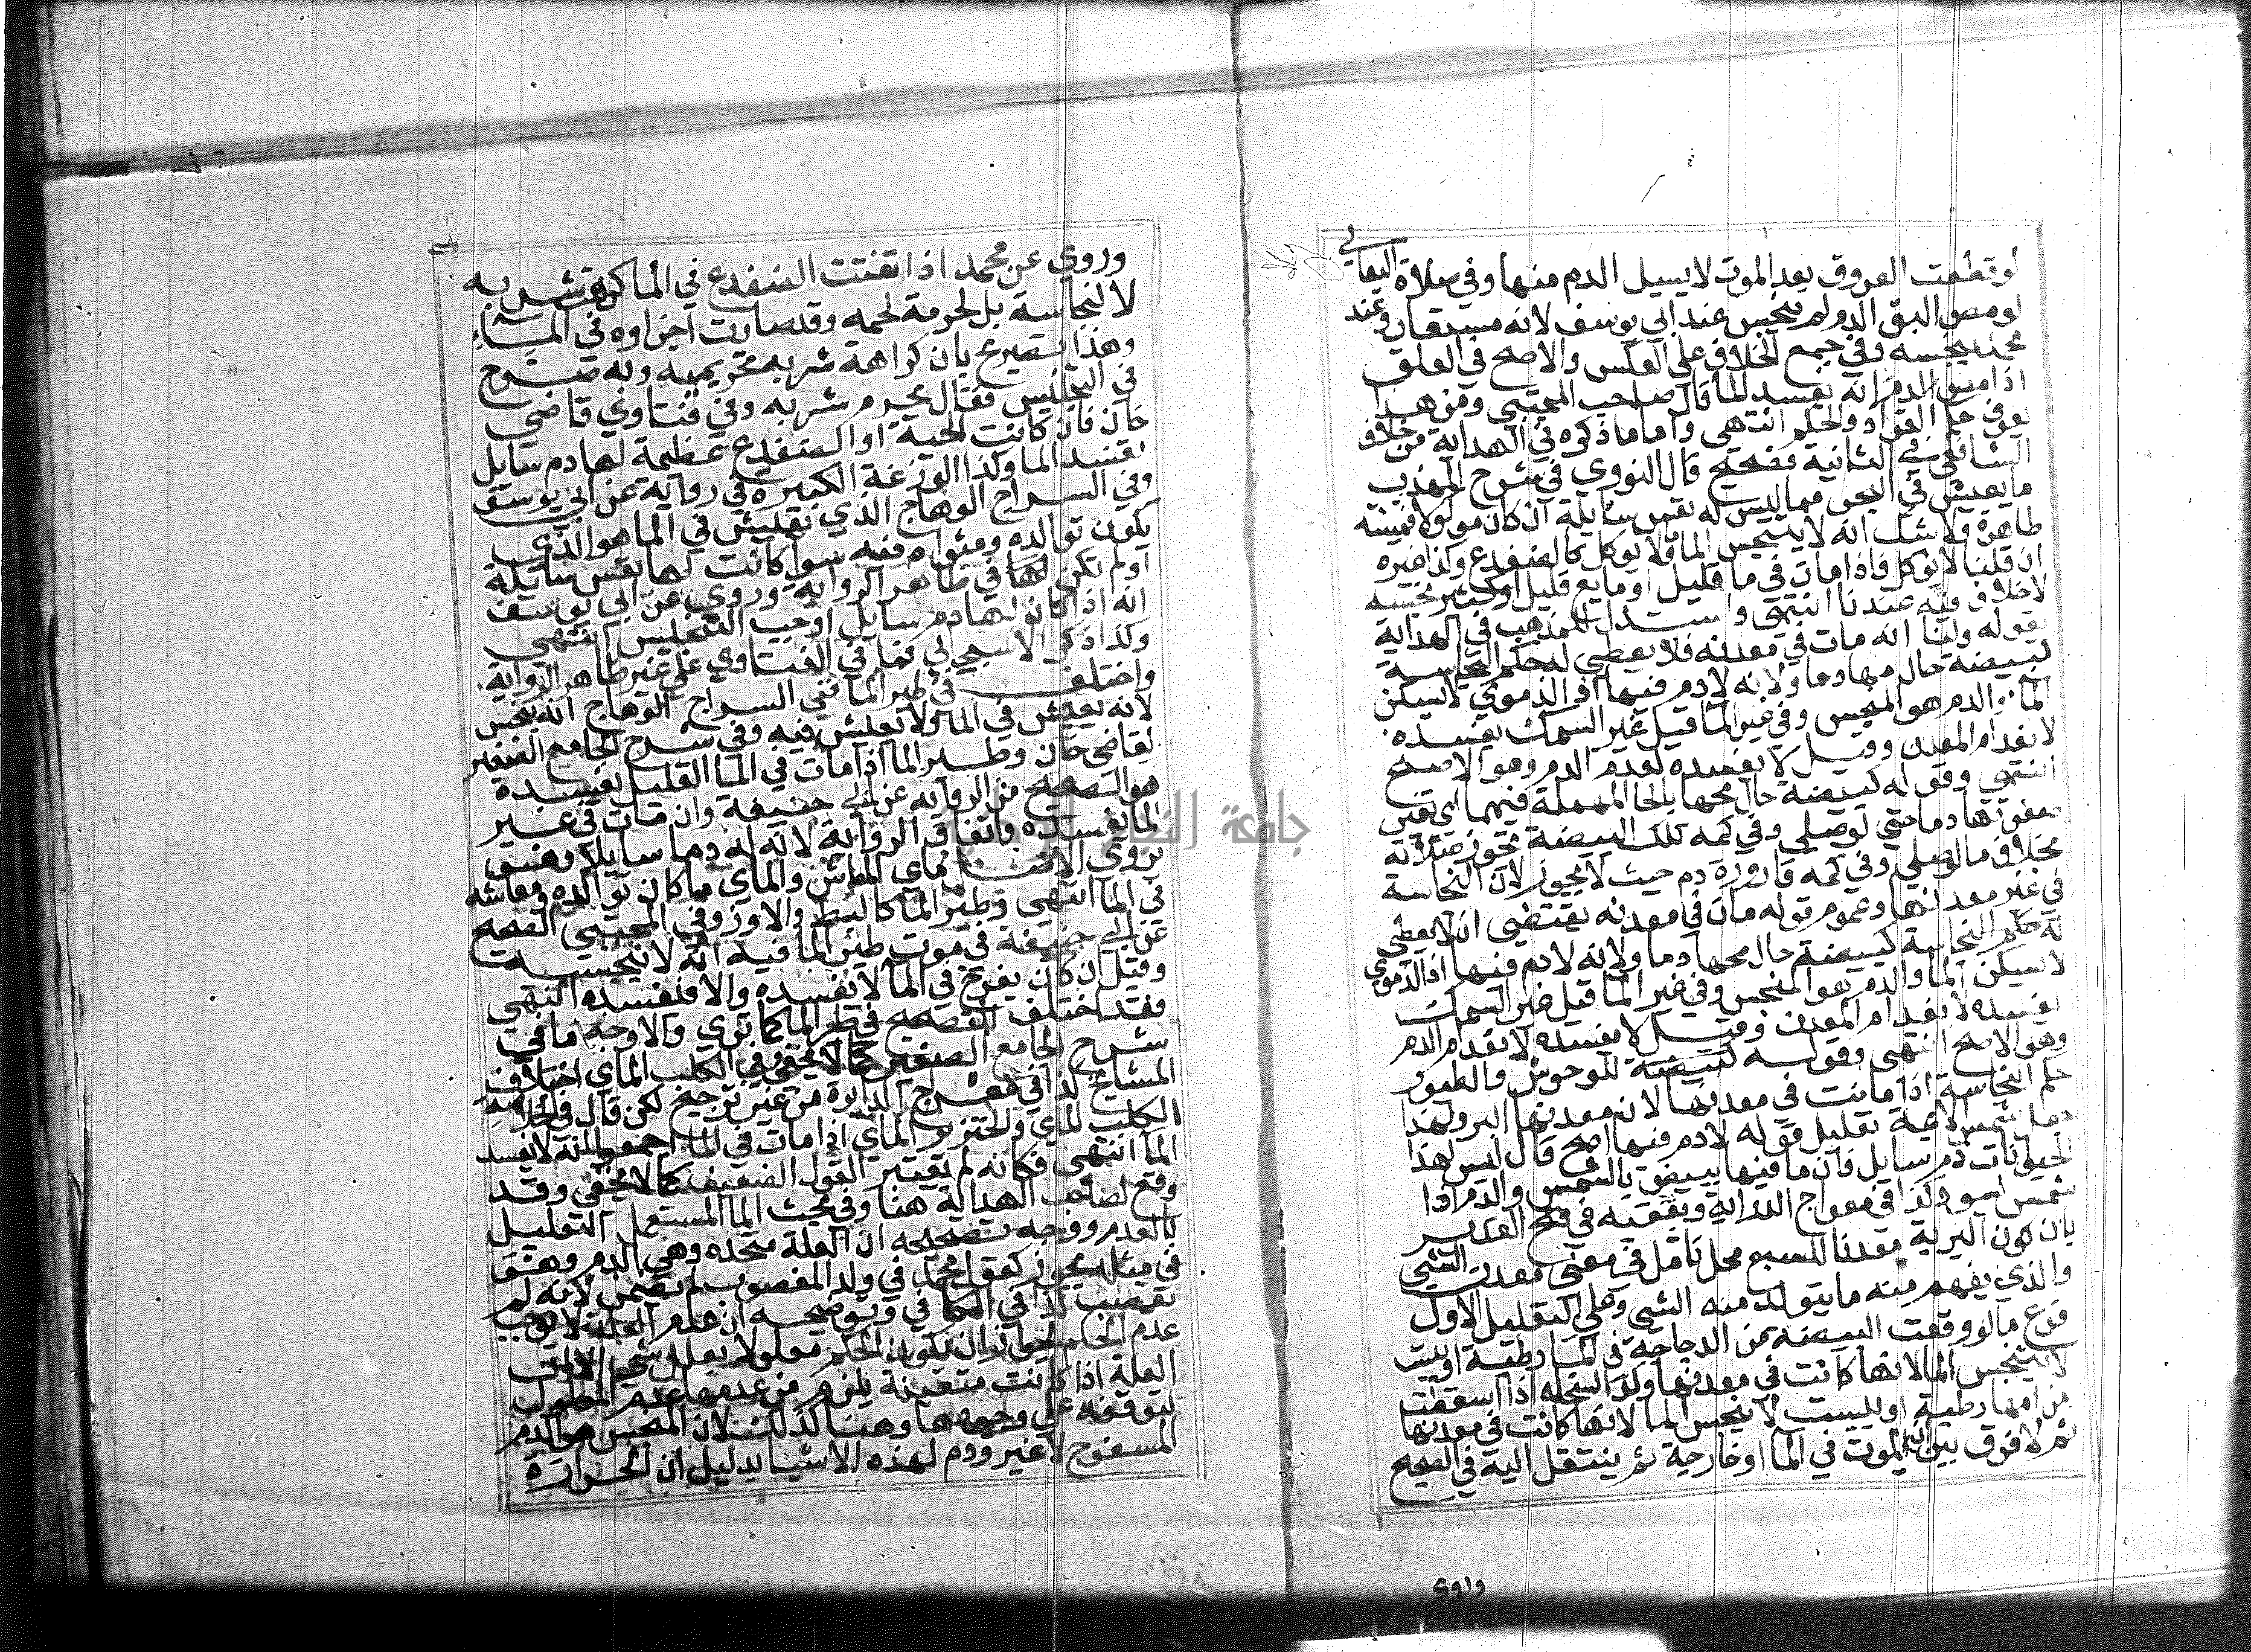 لو تطعت العروق بعد الموت لا يسيل الدم منها وفي صلاة البقالي
لو مص البق الدم لم ينجس عند ابي يوسف لانه مستعار وعند
محمد ينجسه وفي جمع الخلاف على العكس والاصح في العلق
اذا مص الدم انه يفسد الما قال صاحب المجتبى ومن هذا
يعرف حكم القراد والحلم انتهى واما ما ذكره في الهداية من خلاف
الشافعي في الثانية فصحيح قال النووي في شرح المهذب
ما يعيش في البحر مما ليس له نفس سايلة ان كان ماكولا فميتته
طاهرة ولا شك انه لا ينجس الما وما لا يوكل كالضفدع وكذا غيره
ان قلنا لا يوكل فاذا مات في ما قليل او مايع قليل او كثير نجسه
لا خلاف فيه عندنا انتهى واستدل للمذهب في الهداية
بقوله ولنا انه مات في معدنه فلا يعطى له حكم النجاسة
كبيضة حال محها دما ولانه لا دم فيها اذ الدموي لا يسكن
الما والدم هو المنجس وفي غير الما قيل غير السمك يفسده
لانعدام المعدن وقيل لا يفسده لعدم الدم وهو الاصح
انتهى وقوله كبيضة حال محها بالحا المهملة فيهما اي تغير
صفرتها دما حتى لو صلى وفي كمه تلك البيضة تجوز صلاته
بخلاف ما لو صلى وفي كمه قارورة دم حيث لا يجوز لان النجاسة
في غير معدنها وعموم قوله مات في معدنه يقتضي ان لا يعطى
له حكم النجاسة كبيضة حال محها دما ولانه لا دم فيها اذ الدموي
لا يسكن الما والدم هو المنجس وفي غير الما قيل غير السمك
يفسده لانعدام المعدن وقيل لا يفسده لانعدام الدم
وهو الاصح انتهى وقوله كبيضة للوحوش والطيور
حكم النجاسة اذا ماتت في معدنها لان معدنها البر ولهذا
جعل شمس الايمة تعليل قوله لا دم فيها اصح قال ليس لهذا
الحيوانات دم سايل فان ما فيها يبيض بالشمس والدم اذا
شمس اسود وكذا في معراج الدراية وتعقبه في فتح القدير
بان كون البرية معدنا للسبع محل تامل في معنى معدن الشي
والذي يفهم منه ما يتولد منه الشي وعلى التعليل الاول
فرع ما لو وقعت البيضة من الدجاجة في الما رطبة او يبست
لا يتنجس الما لانها كانت في معدنها وكذا السخلة اذا سقطت
من امها رطبة او يبست لا ينجس الما لانها كانت في معدنها
ثم لا فرق بين ان يموت في الما او خارجه ثم ينتقل اليه في الصحيح
وروي
وروي عن محمد اذا تفتت الضفدع في الما كرهت شربه
لا لنجاسة بل لحرمة لحمه وقد صارت اجزاوه في الماء
وهذا تصريح بان كراهة شربه تحريمية وبه صرح
في التجنيس فقال يحرم شربه وفي فتاوي قاضي
خان فان كانت الحية او الضفدع عظيمة لها دم سايل
تفسد الما وكذا الوزغة الكبيرة في رواية عن ابي يوسف
وفي السراج الوهاج الذي يعيش في الما هو الذي
يكون توالده ومثواه فيه سوا كانت لها نفس سايلة
اولم تكن لها في ظاهر الرواية وروي عن ابي يوسف
انه اذا كان لها دم سايل اوجب التنجيس انتهى
وكذا ذكر الاسبيجابي فما في الفتاوي على غير ظاهر الرواية
واختلف في طير الما ففي السراج الوهاج انه ينجس
لانه يعيش في الما ولا يعيش فيه وفي شرح الجامع الصغير
لقاضي خان وطير الما اذا مات في الما القليل يفسده
هو الصحيح من الرواية عن ابي حنيفة وان مات في غير
الما يفسده باتفاق الرواية لانه له دما سايلا وهو
بروي الاصل مائي المعاش والمائي ما كان توالده ومعاشه
في الما انتهى وطير الما كالبط والاوز وفي المجتبى الصحيح
عن ابي حنيفة في موت طير الما فيه انه لا ينجسه
وقيل ان كان يفرخ في الما لا يفسده والا فيفسده انتهى
فقد اختلف التصحيح في طير الما كما ترى والاوجه ما في
شرح الجامع الصغير كما لا يخفى وفي الكلب المائي اختلاف
المشايخ كذا في معراج الدراية من غير ترجيح لكن قال في الخلاصة
الكلب المائي والخنزير المائي اذا مات في الما اجمعوا انه لا يفسد
الما انتهى فكانه لم يعتبر القول الضعيف كما لا يخفى وقد
وقع لصاحب الهداية هنا وفي بحث الما المستعمل التعليل
بالعدم ووجه تصحيحه ان العلة متحدة وهي الدم وهو
في مثله يجوز كقول محمد في ولد المغصوب لم يضمن لانه لم
يغصب كذا في الكافي وتوضيحه ان عدم العلة لا يوجب
عدم الحكم لجواز ان يكون الحكم معلولا بعلل شتى الا ان
العلة اذا كانت متعينة يلزم من عدمها عدم المعلول
لتوقفه على وجودها وهنا كذلك لان المنجس هو الدم
المسفوح لا غير ودم لهذه الاشيا بدليل ان الحرارة
جامعة النجاح